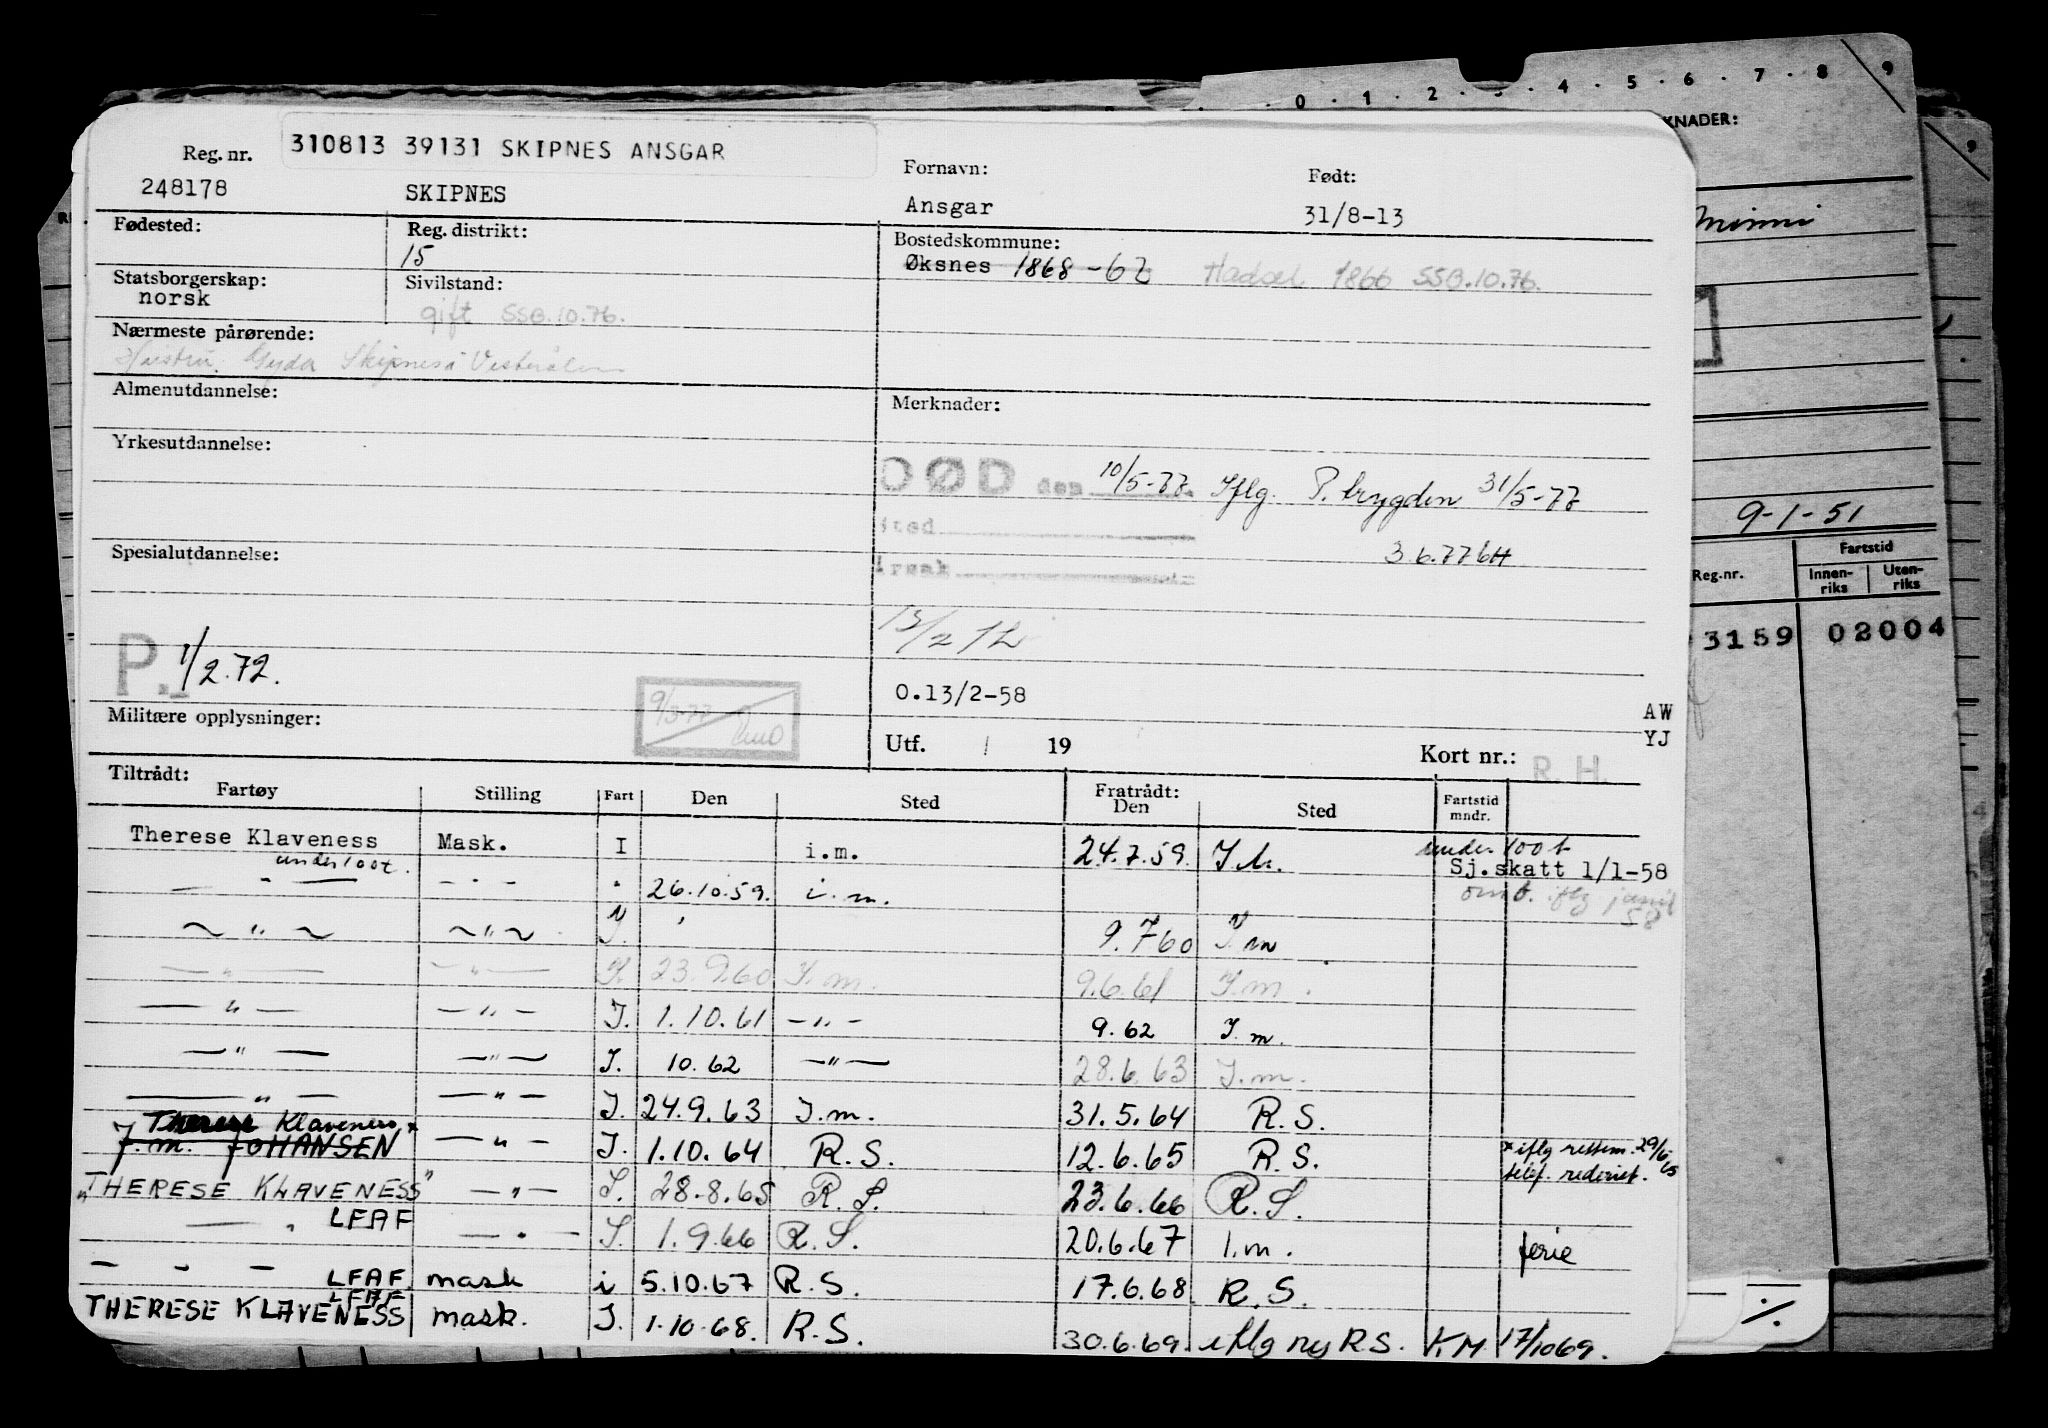 0 · 1 · 2 · 3 · 4 · 5 · 6 · 7 · 8 9
KNADER:
9
Reg. nr.
310813 39131 SKIPNES ANSGAR
Fornavn:
Født:
248178
SKIPNES
Ansgar
31/8-13
Fødested:
Reg. distrikt:
15
Bostedskommune:
Øksnes 1868-67 Hadsel 1866 SSB.10.76.
Statsborgerskap:
norsk
Sivilstand:
gift SSB.10.76.
Nærmeste pårørende:
Hustru. Gyda Skipnes
Almenutdannelse:
Merknader:
Yrkesutdannelse:
DØD den 10/5-77. Iflg. 31/5-77
sted
årsak
3.6.77
Spesialutdannelse:
P. 1/2.72.
13/2 72
O.13/2-58
AW
YJ
Militære opplysninger:
Utf. / 19
Kort nr.:
R. H.
9-1-51
Reg.nr.
Fartstid
Innen-
riks
Uten-
riks
3159 02004
Tiltrådt:
Fartøy Stilling Fart Den Sted
Fratrådt:
Den Sted
Fartstid
mndr.
Therese Klaveness Mask. I i.m. 24.7.59. under 100 t
under 100t. Sj.skatt 1/1-58
— " — — " — " 26.10.59. i.m.
58
~ " ~ ~ " ~ I. 9.7 60 I.m
— " — — " — I. 23.9.60 I.m. 9.6.61 I.m.
— " — — " — I. 1.10.61 — " — 9.62 I.m.
— " — — " — I. 10.62 — " — 28.6.63 I.m.
— " — — " — I. 24.9.63 I.m. 31.5.64 R.S.
Therese Klaveness *
J.M. JOHANSEN — " — I. 1.10.64 R.S. 12.6.65 R.S. * iflg 29/6-65
telef. rederiet.
"THERESE KLAVENESS" — " — I. 28.8.65 R.S. 23.6.66 R.S.
LFAF
— " — — " — I. 1.9.66 R.S. 20.6.67 I.m. ferie
— " — LFAF. mask i 5.10.67 R.S. 17.6.68 R.S.
LFAF
THERESE KLAVENESS mask. I. 1.10.68. R.S. 30.6.69. iflg ny R.S. KM 17/10 69.